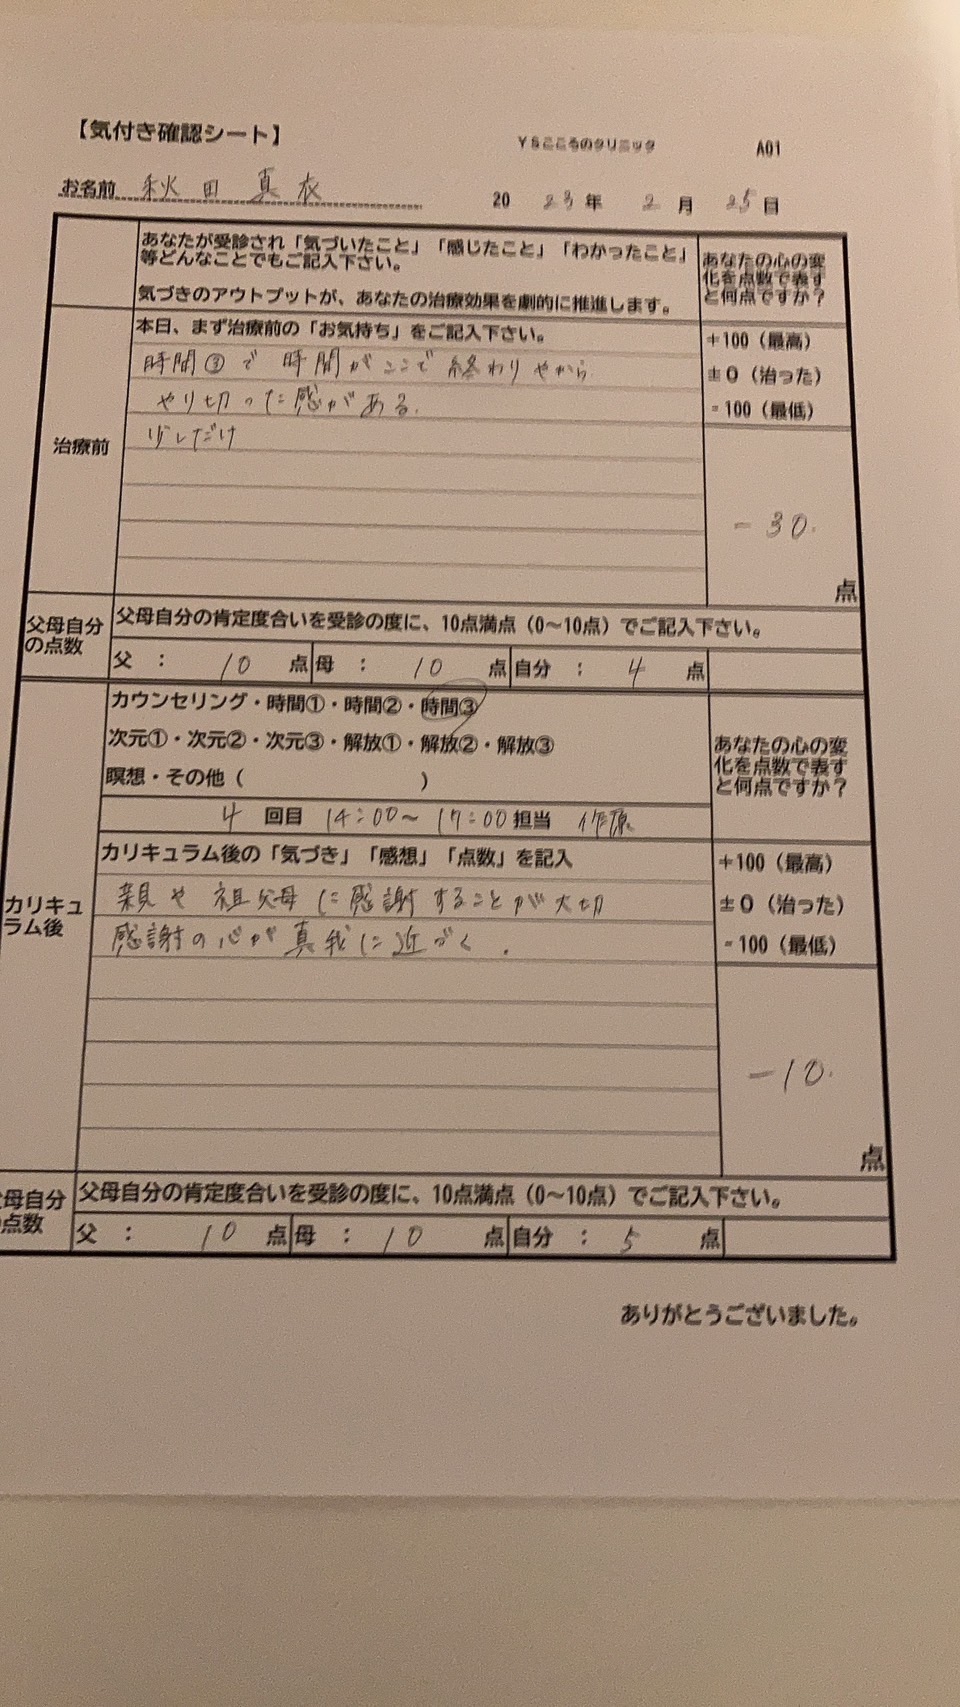 【気付き確認シート】
YSこころのクリニック A01
お名前 秋田 真衣 2023年 2月 25日
あなたが受診され「気づいたこと」「感じたこと」「わかったこと」
等どんなことでもご記入下さい。
気づきのアウトプットが、あなたの治療効果を劇的に推進します。
あなたの心の変
化を点数で表す
と何点ですか？
治療前
本日、まず治療前の「お気持ち」をご記入下さい。
時間③で 時間がここで終わりやから
やり切った感がある.
少しだけ
+100（最高）
±0（治った）
-100（最低）
-30.
点
父母自分
の点数
父母自分の肯定度合いを受診の度に、10点満点（0〜10点）でご記入下さい。
父 ： 10 点 母 ： 10 点 自分 ： 4 点
カウンセリング・時間①・時間②・時間③
次元①・次元②・次元③・解放①・解放②・解放③
瞑想・その他（ ）
4 回目 14:00〜17:00 担当 作原
あなたの心の変
化を点数で表す
と何点ですか？
カリキュ
ラム後
カリキュラム後の「気づき」「感想」「点数」を記入
親や祖父母に感謝することが大切
感謝の心が真我に近づく.
+100（最高）
±0（治った）
-100（最低）
-10.
点
父母自分
の点数
父母自分の肯定度合いを受診の度に、10点満点（0〜10点）でご記入下さい。
父 ： 10 点 母 ： 10 点 自分 ： 5 点
ありがとうございました。